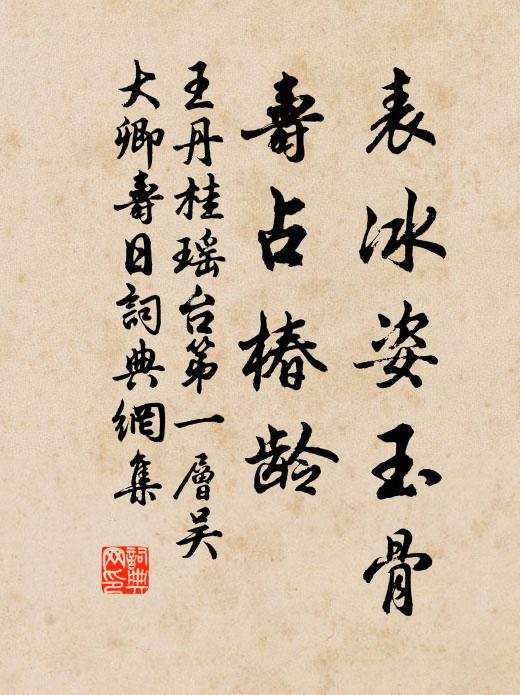 表冰姿玉骨
壽占椿龄
王丹桂瑶台第一層吴
大卿壽日詞典網集
詞典
网印